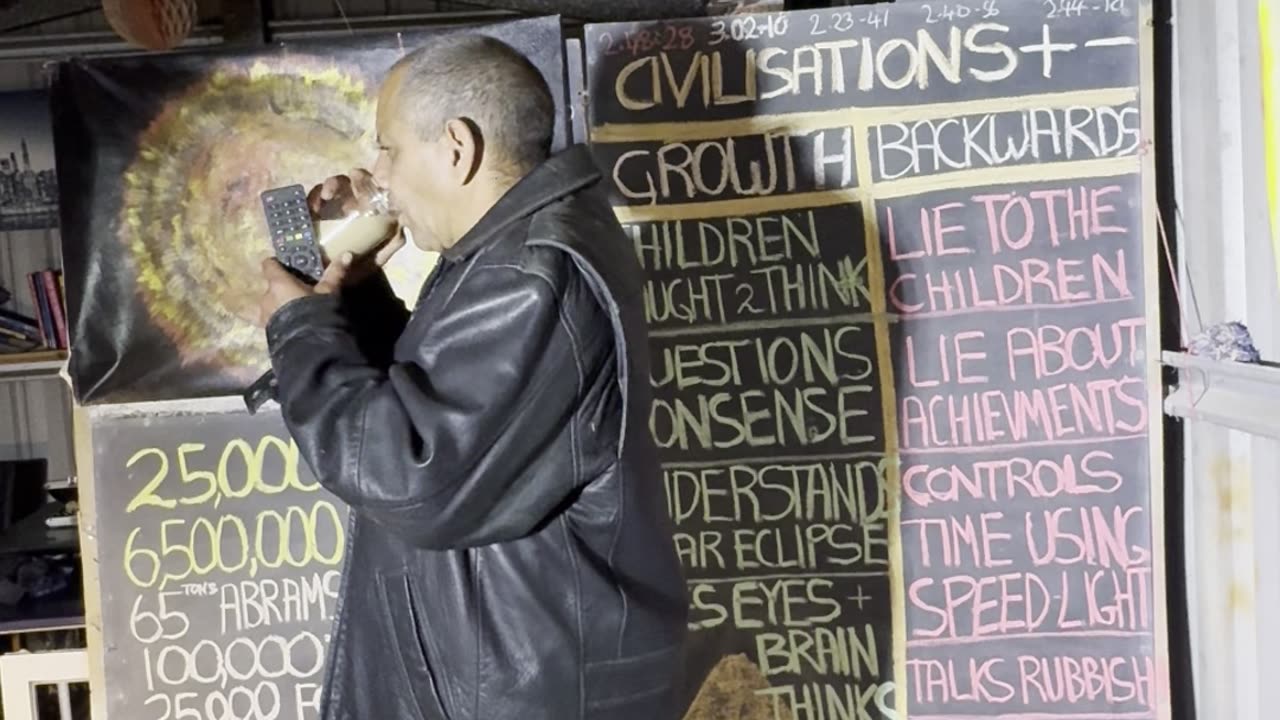 2.48-28 3.02-10 2.23-41 2.40-56 2.44-19
CIVILISATIONS + -
GROWTH
BACKWARDS
HILDREN
UGHT 2 THINK
UESTIONS
ONSENSE
DERSTANDS
AR ECLIPSE
ES EYES +
BRAIN
THINKS
LIE TO THE
CHILDREN
LIE ABOUT
ACHIEVMENTS
CONTROLS
TIME USING
SPEED-LIGHT
TALKS RUBBISH
25,000
6,500,000
65 TONS ABRAMS
100,000
25,000 F